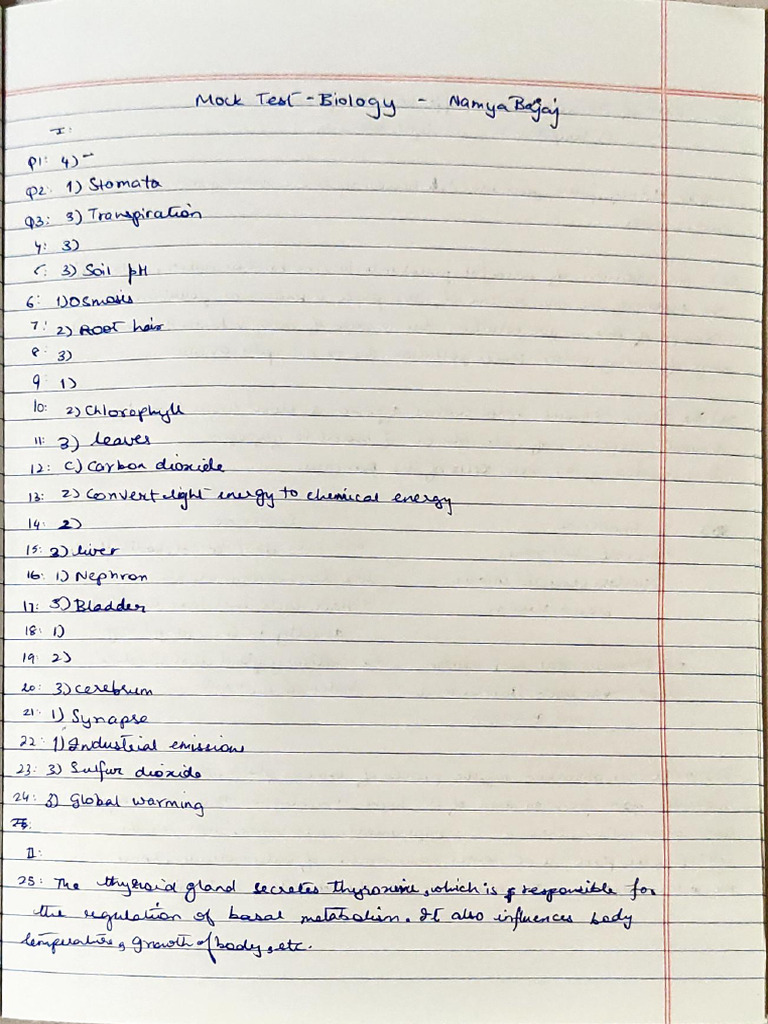 Mock Test - Biology - Namya Bajaj
I:
Q1: 4) -
Q2: 1) Stomata
Q3: 3) Transpiration
4: 3)
5: 3) Soil pH
6: 1) Osmosis
7: 2) Root hair
8: 3)
9: 1)
10: 2) Chlorophyll
11: 3) leaves
12: C) Carbon dioxide
13: 2) Convert light energy to chemical energy
14: 2)
15: 2) liver
16: 1) Nephron
17: 3) Bladder
18: 1)
19: 2)
20: 3) cerebrum
21: 1) Synapse
22: 1) Industrial emission
23: 3) Sulfur dioxide
24: 3) Global warming
II:
25: The thyroid gland secretes thyroxine, which is responsible for
the regulation of basal metabolism. It also influences body
temperature, growth of body, etc.